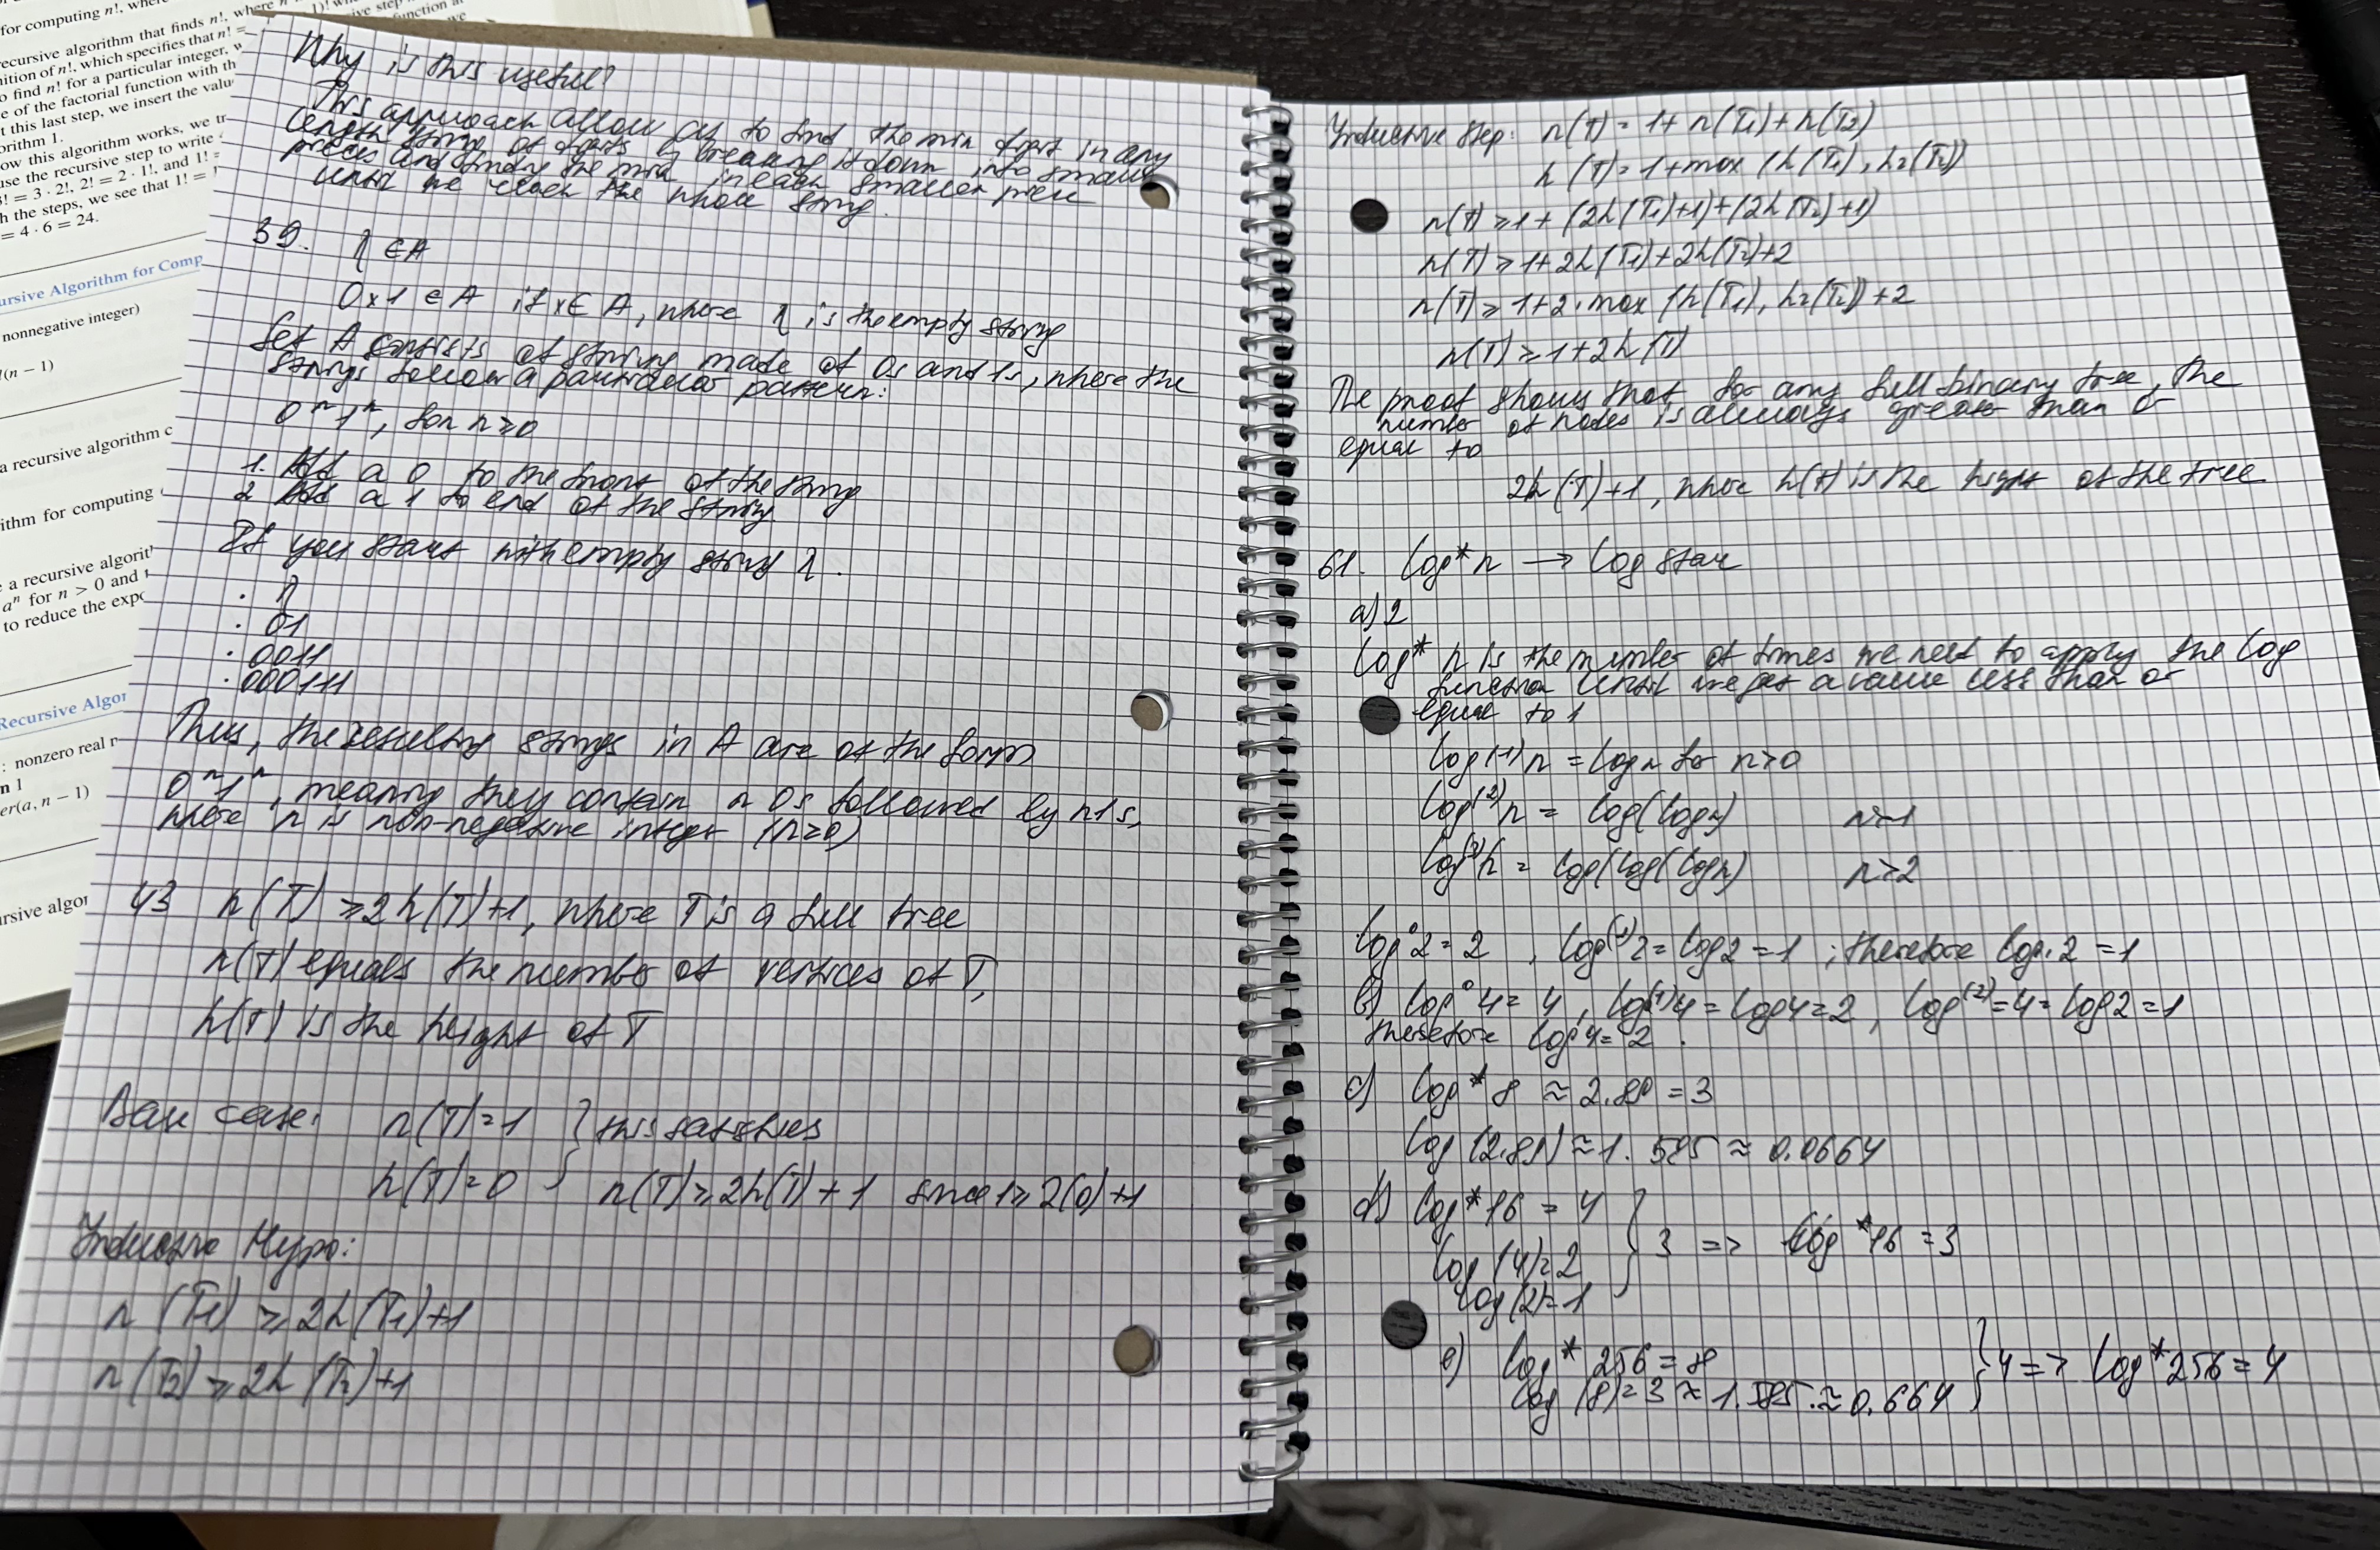 for computing n!, where
recursive algorithm that finds n!, where n
nition of n!, which specifies that n! =
o find n! for a particular integer, w
e of the factorial function with th
t this last step, we insert the valu
orithm 1.
ow this algorithm works, we tr
use the recursive step to write
3! = 3 · 2!, 2! = 2 · 1!, and 1! =
h the steps, we see that 1! = 1
= 4 · 6 = 24.
ursive Algorithm for Comp
nonnegative integer)
l(n − 1)
a recursive algorithm c
ithm for computing
e a recursive algorit
aⁿ for n > 0 and
to reduce the expo
Recursive Algor
: nonzero real n
n 1
er(a, n − 1)
ursive algor
Why is this useful?
This approach allow us to find the min digit in any
length string of digits by breaking it down into smaller
pieces and finding the min in each smaller piece
until we reach the whole string.
39. λ ∈ A
0x1 ∈ A if x ∈ A, where λ is the empty string
Set A consists of string made of 0s and 1s, where the
strings follow a particular pattern:
0ⁿ1ⁿ, for n ≥ 0
1. Add a 0 to the front of the string
2 Add a 1 to end of the string.
If you start with empty string λ.
· λ
· 01
· 0011
· 000111
Thus, the resulting strings in A are of the form
0ⁿ1ⁿ, meaning they contain n 0s followed by n 1s,
where n is non-negative integer (n≥0)
43 n(T) ≥ 2h(T)+1, where T is a full tree
n(T) equals the number of vertices of T,
h(T) is the height of T
Base case: n(T)=1 } this satisfies
h(T)=0 n(T) ≥ 2h(T)+1 since 1 ≥ 2(0)+1
Inductive Hypo:
n(T₁) ≥ 2h(T₁)+1
n(T₂) ≥ 2h(T₂)+1
Inductive step: n(T) = 1+ n(T₁)+n(T₂)
h(T)=1+max(h(T₁), h₂(T₂))
n(T) ≥ 1+(2h(T₁)+1)+(2h(T₂)+1)
n(T) ≥ 1+2h(T₁)+2h(T₂)+2
n(T) ≥ 1+2·max(h(T₁), h₂(T₂))+2
n(T) ≥ 1+2h(T)
The proof shows that for any full binary tree, the
number of nodes is always greater than or
equal to
2h(T)+1, where h(T) is the hight of the tree
61. log* n → log star
a) 2
log* n is the number of times we need to apply the log
function until we get a value less than or
equal to 1
log⁽¹⁾n = log n for n>0
log⁽²⁾n = log(log n) n>1
log⁽³⁾n = log(log(log n) n>2
log⁰2 = 2 , log⁽¹⁾2 = log 2 = 1 ; therefore log· 2 = 1
b) log⁰4 = 4, log⁽¹⁾4 = log 4 = 2, log⁽²⁾=4=log 2=1
therefore log·4= 2.
c) log* 8 ≈ 2.89 = 3
log (2.89) ≈ 1.585 ≈ 0.0664
d) log* 16 = 4
log (4)=2 } 3 => log* 16 = 3
log (2)=1
e) log* 256 = 8
log (8)=3 ≈ 1.585 ≈ 0.664 } 4 => log* 256 = 4